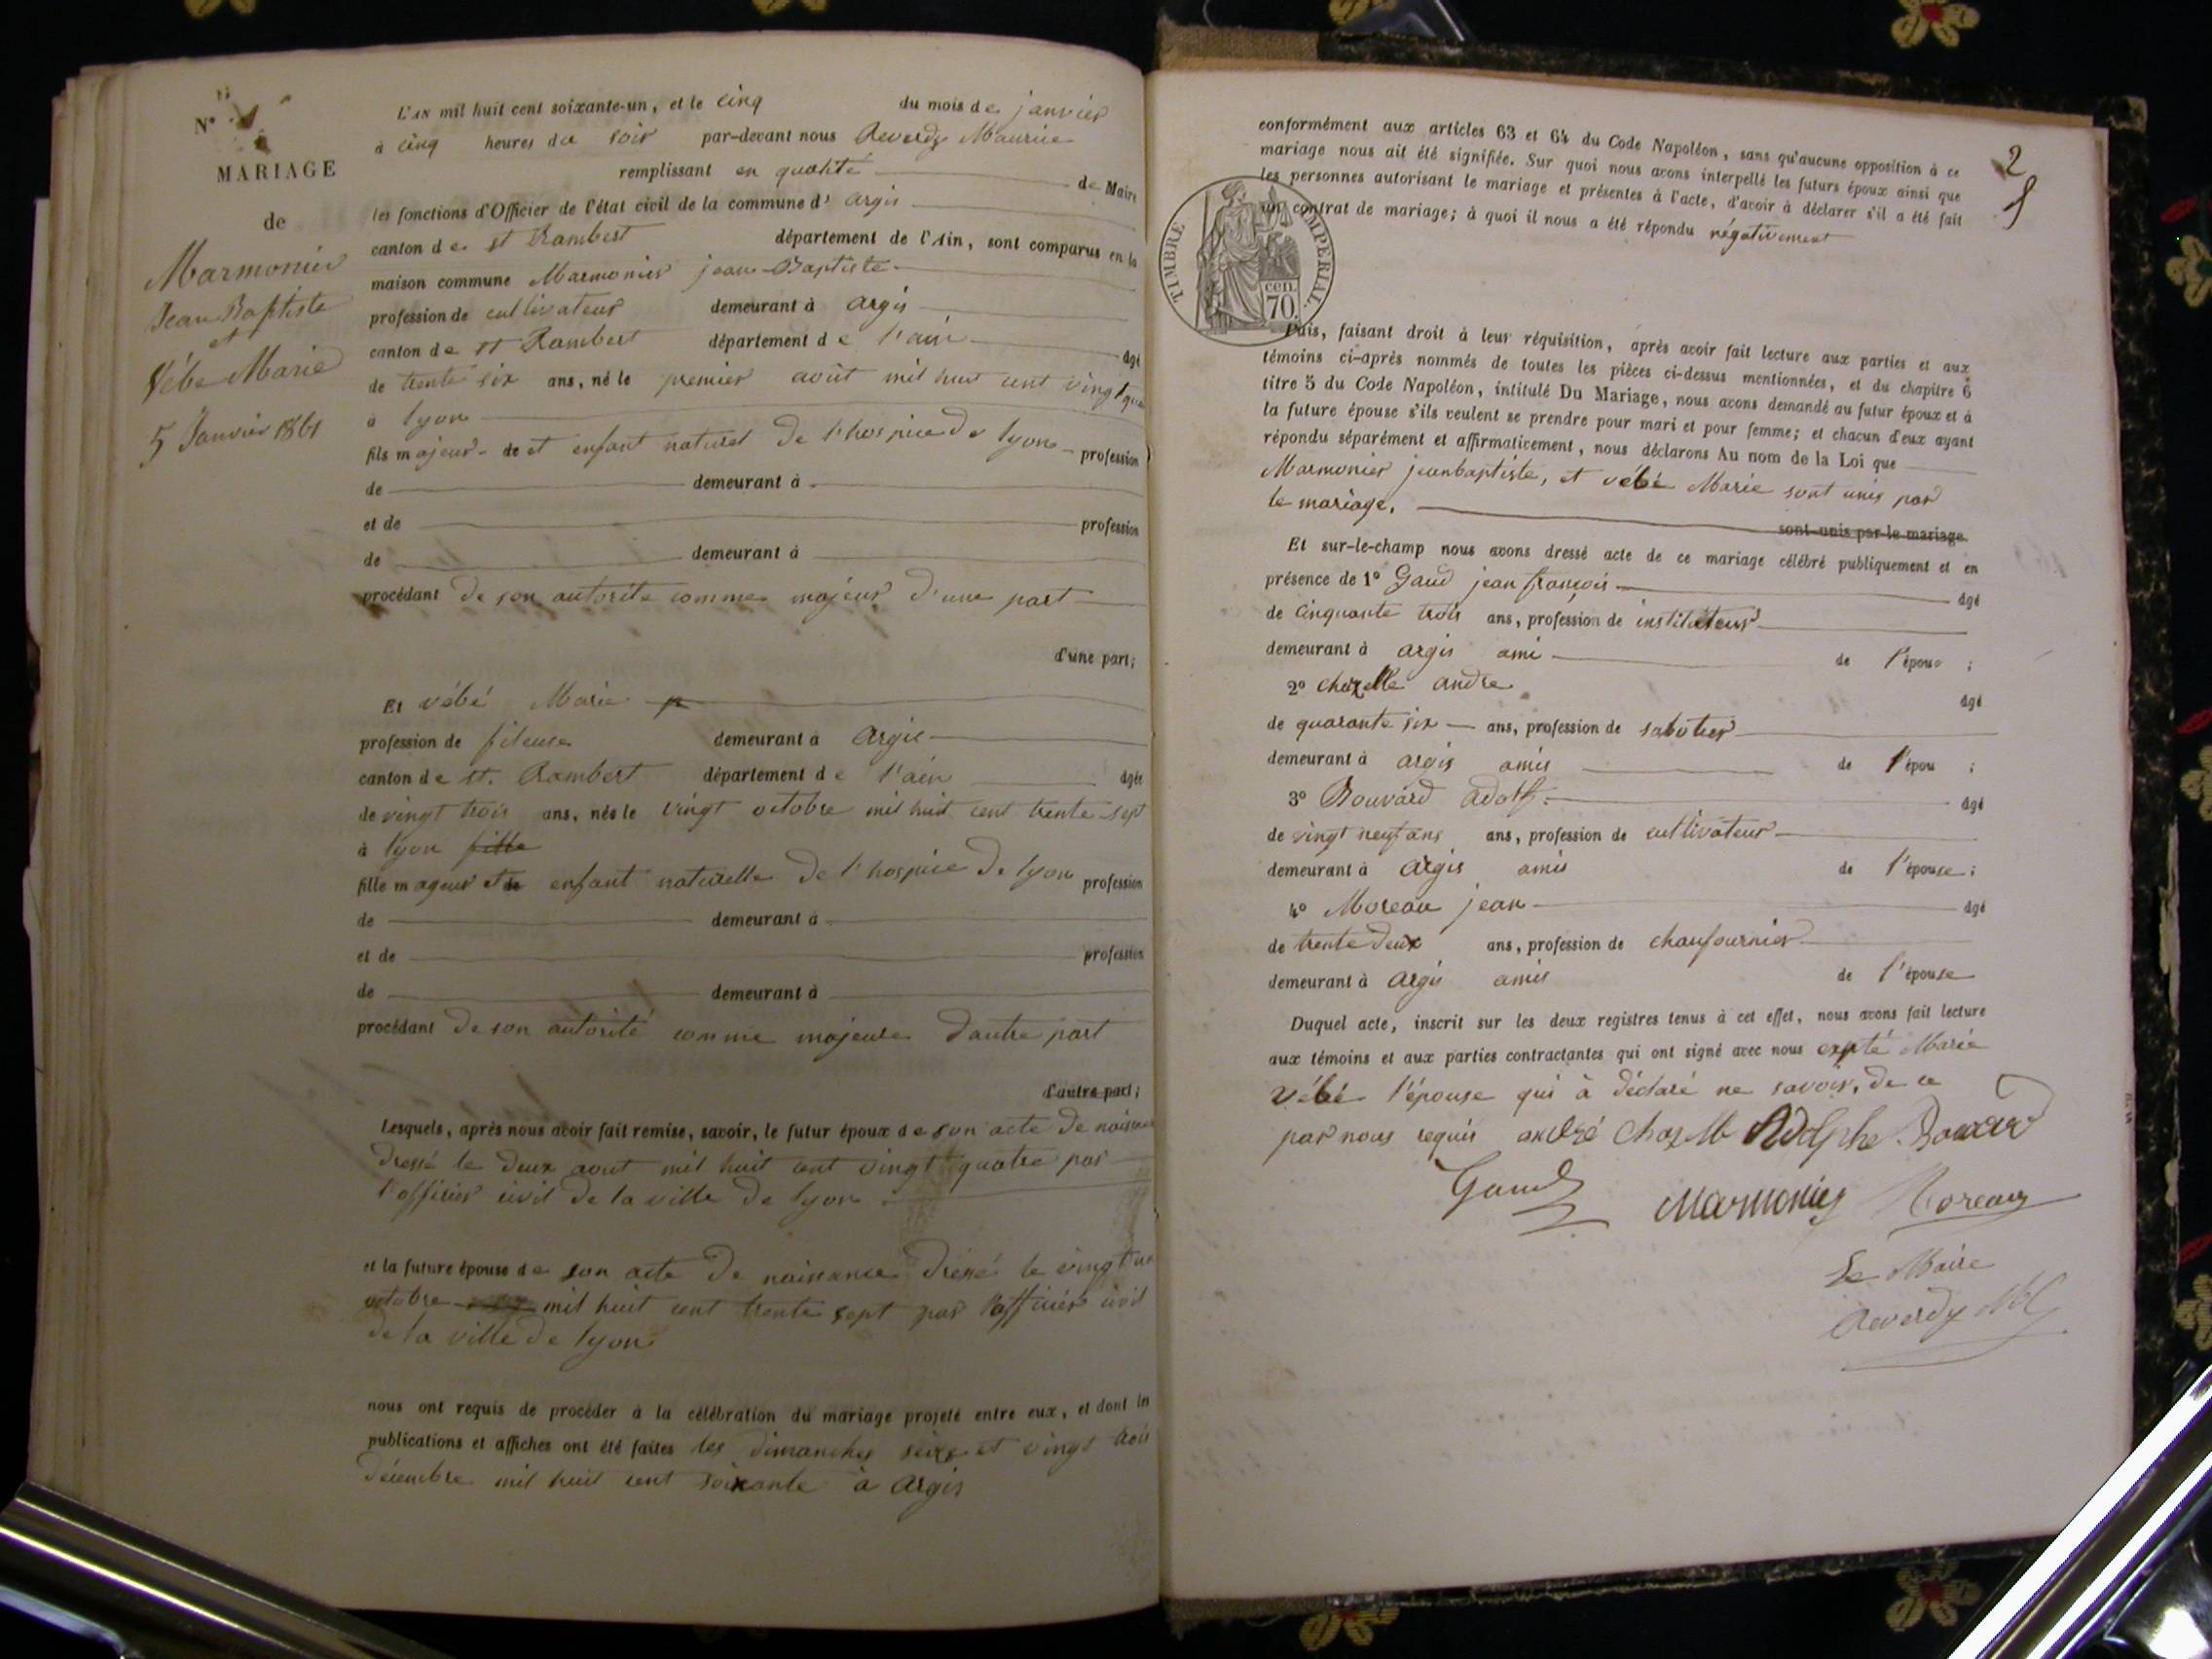 N° 1
MARIAGE
de
Marmonier
Jean Baptiste
et
Vébé Marie
5 Janvier 1861
L'AN mil huit cent soixante-un, et le cinq du mois de janvier
à cinq heures du soir par-devant nous Reverdy Maurice
remplissant en qualité de Maire
les fonctions d'Officier de l'état civil de la commune d' argis
canton de st Rambert département de l'Ain, sont comparus en la
maison commune Marmonier jean-Baptiste
profession de cultivateur demeurant à argis
canton de st Rambert département de l'ain âgé
de trente six ans, né le premier août mil huit cent vingt qua
à lyon
fils majeur de et enfant naturel de l'hospice de lyon profession
de demeurant à
et de profession
de demeurant à
procédant de son autorité comme majeur d'une part
d'une part;
Et vébé Marie
profession de fileuse demeurant à Argis
canton de st. Rambert département de l'ain âgée
de vingt trois ans, née le vingt octobre mil huit cent trente sept
à lyon fille
fille mageur et de enfant naturelle de l'hospice de lyon profession
de demeurant à
et de profession
de demeurant à
procédant de son autorité comme majeure d'autre part
d'autre part;
Lesquels, après nous avoir fait remise, savoir, le futur époux de son acte de naissance
dressé le deux aout mil huit cent vingt quatre par
l'officier civil de la ville de lyon
et la future épouse de son acte de naissance dressé le vingt un
octobre mil huit cent trente sept par l'officier civil
de la ville de lyon
nous ont requis de procéder à la célébration du mariage projeté entre eux, et dont les
publications et affiches ont été faites les dimanches seize et vingt trois
décembre mil huit cent soixante à Argis
2
conformément aux articles 63 et 64 du Code Napoléon, sans qu'aucune opposition à ce
mariage nous ait été signifiée. Sur quoi nous avons interpellé les futurs époux ainsi que
les personnes autorisant le mariage et présentes à l'acte, d'avoir à déclarer s'il a été fait
un contrat de mariage; à quoi il nous a été répondu négativement
TIMBRE IMPERIAL.
70 cen.
Puis, faisant droit à leur réquisition, après avoir fait lecture aux parties et aux
témoins ci-après nommés de toutes les pièces ci-dessus mentionnées, et du chapitre 6
titre 5 du Code Napoléon, intitulé Du Mariage, nous avons demandé au futur époux et à
la future épouse s'ils veulent se prendre pour mari et pour femme; et chacun d'eux ayant
répondu séparément et affirmativement, nous déclarons Au nom de la Loi que
Marmonier jeanbaptiste, et vébé Marie sont unis par
le mariage.
sont unis par le mariage.
Et sur-le-champ nous avons dressé acte de ce mariage célébré publiquement et en
présence de 1° Gaud jean françois âgé
de cinquante trois ans, profession de instituteur
demeurant à argis ami de l'épous ;
2° chazelle andre âgé
de quarante six ans, profession de sabotier
demeurant à argis amis de l'épou ;
3° Bouvard adolf. âgé
de vingt neuf ans ans, profession de cultivateur
demeurant à argis amis de l'épouse ;
4° Moreau jean âgé
de trente deux ans, profession de chaufournier
demeurant à argis amis de l'épouse
Duquel acte, inscrit sur les deux registres tenus à cet effet, nous avons fait lecture
aux témoins et aux parties contractantes qui ont signé avec nous expté Marie
vébé l'épouse qui à déclaré ne savoir, de ce
par nous requis andré Chazelle Adolphe Bouvard
Gaud Marmonier Moreau
Le Maire
Reverdy